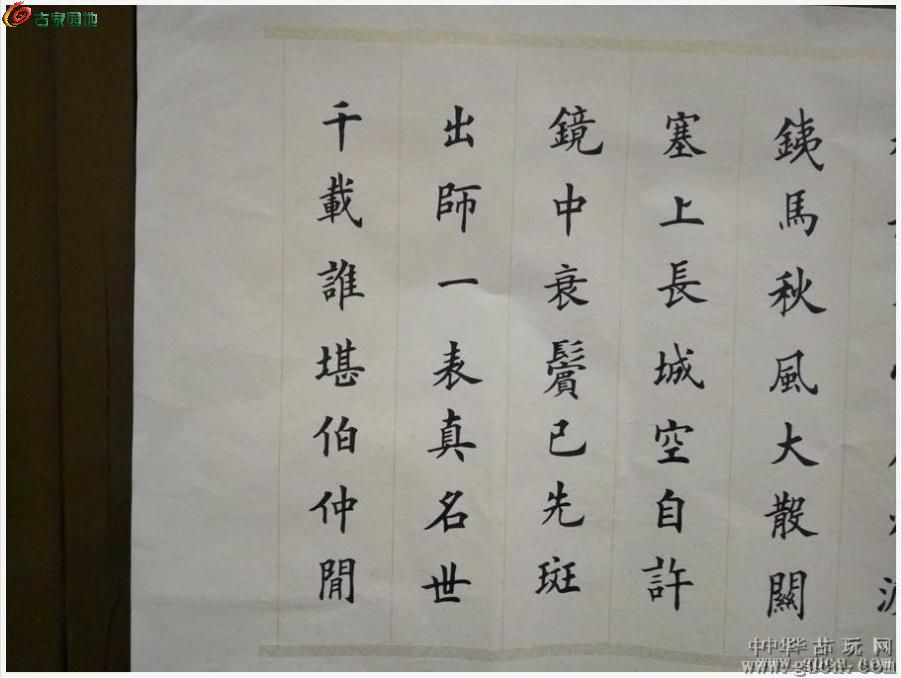 铁馬秋風大散關
塞上長城空自許
鏡中衰鬢已先斑
出師一表真名世
千載誰堪伯仲間
古泉园地
中华古玩网
www.gucn.com